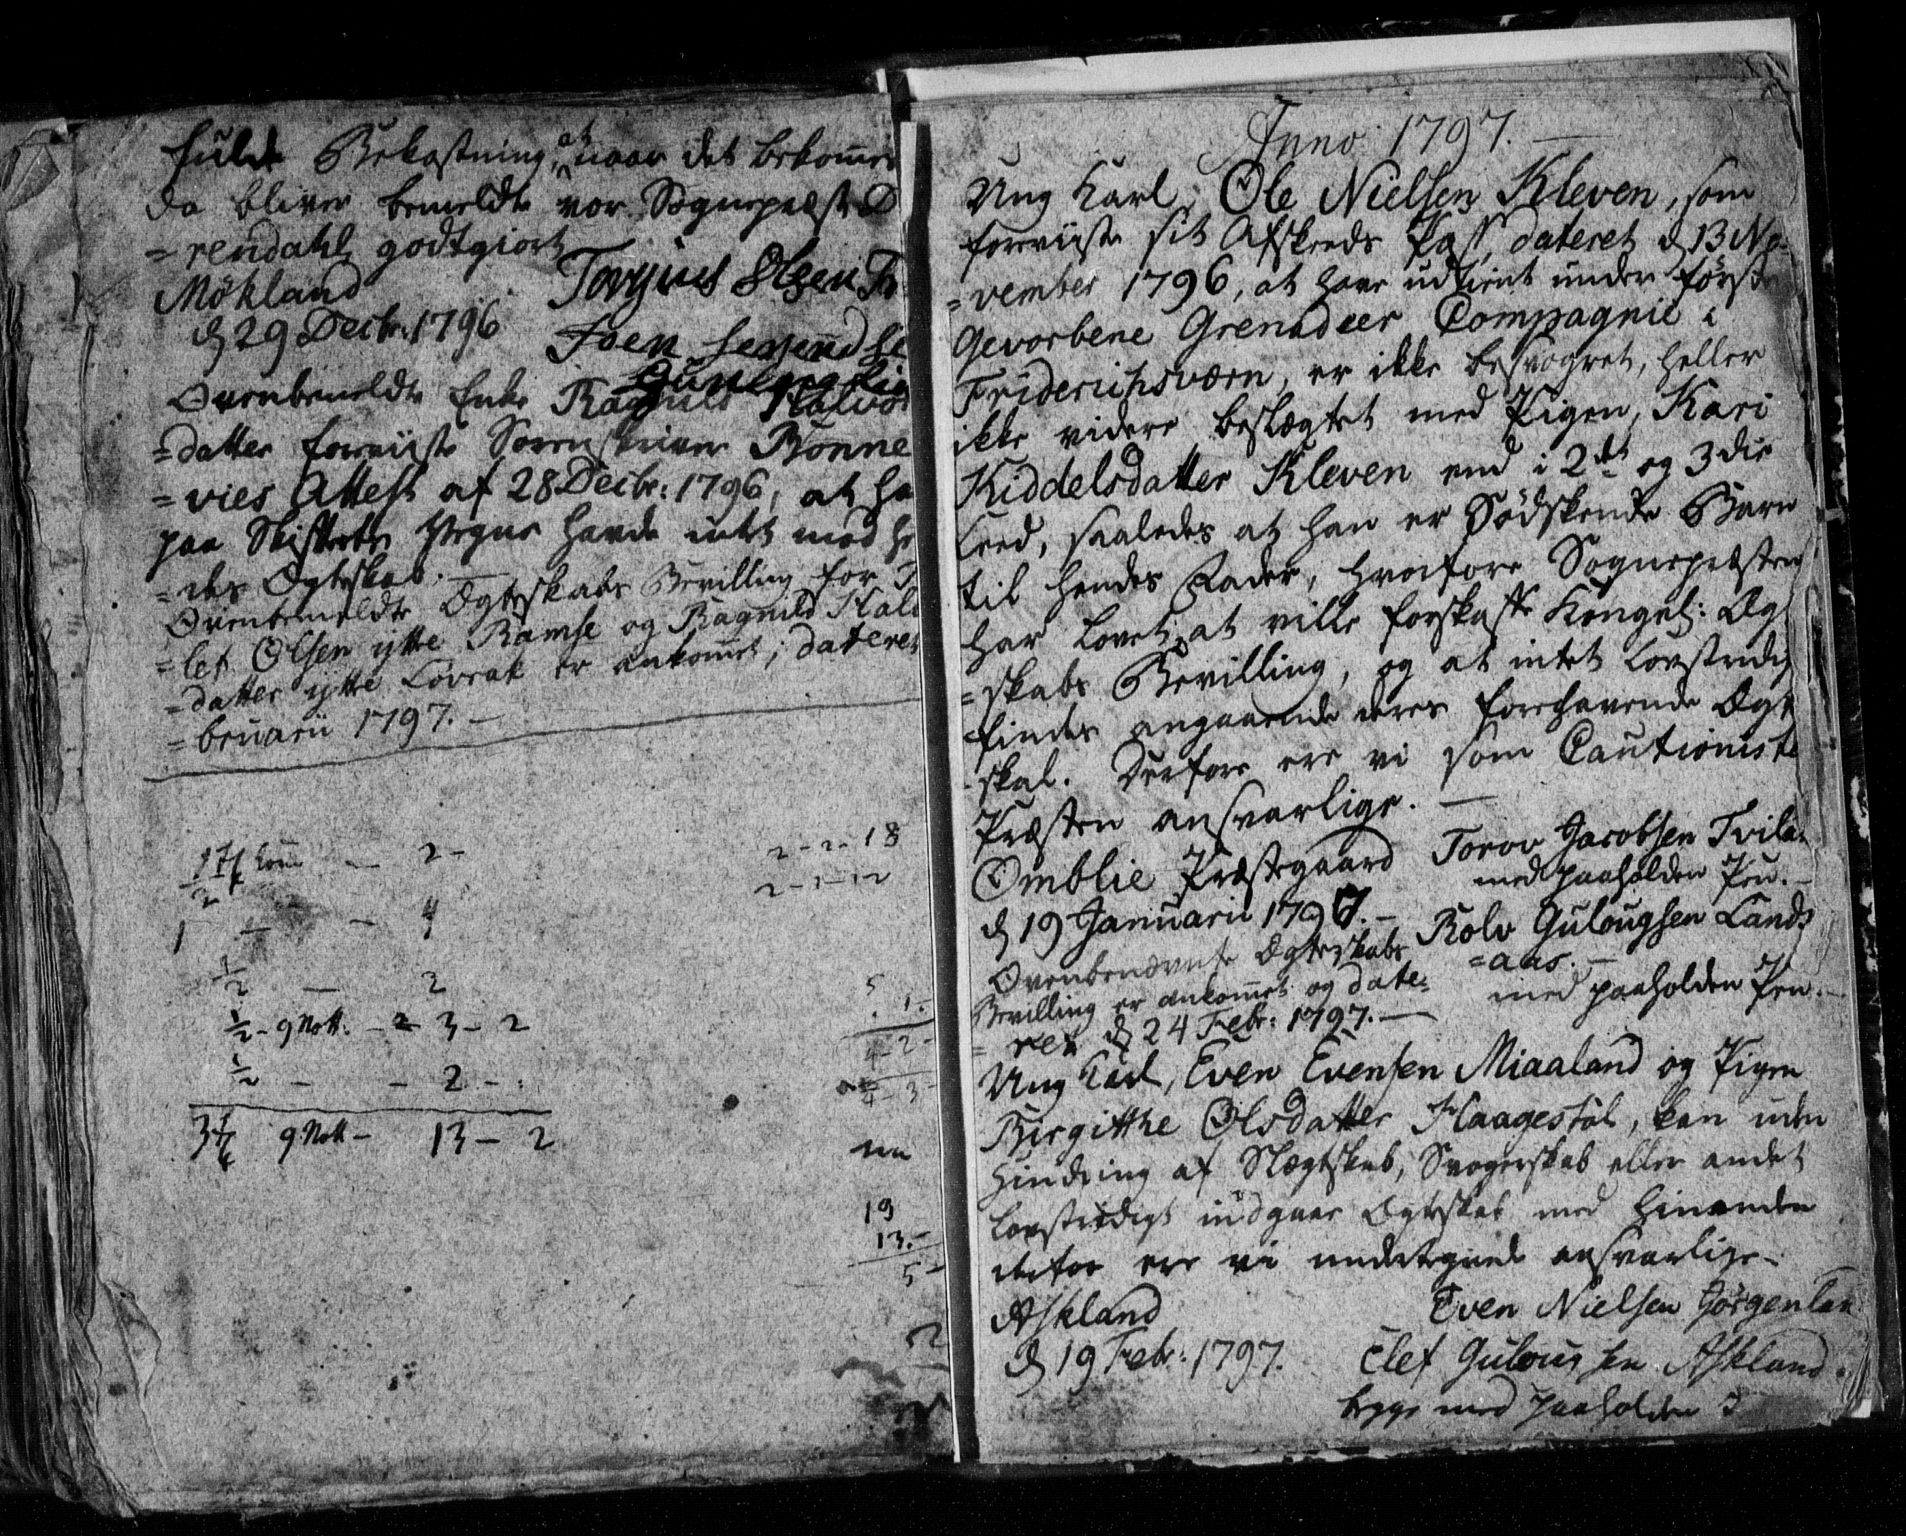 fulde Bekostning, at naar det bekommes
da bliver bemeldte vor Sognepræst
=rendahl godtgiort
Mökland
d 29 Decbr: 1796
Torjus Olsen
Ovenbemeldte Enke Ragnild Halvors
=datter foreviiste Sorenskriver Bonne
=vies Attest af 28 Decbr: 1796, at han
paa Skifterets Vegne havde intet mod
=des Ægteskab. —
Ovenbemeldte Ægteskabs Bevilling for
=lef Olsen ytre Ramse og Ragnild Hal
=datter ytre Lövrak er ankommet, dateret
=bruarii 1797. —
2 —
2 - 2 - 18
2 - 1 - 12
1 — — 4
1/2 — 2
1/2 - 9 Nott. - 3 - 2
1/2 — — 2 -
3 1/4 9 Nott - 13 - 2
4 - 2 -
19
13. -
5 -
Anno 1797. —
Ung Karl, Ole Nielsen Kleven, som
foreviiste sit Afskeeds Pass, dateret d 13 No=
=vember 1796, at have udtient under förste
Gevorbene Grenadeer Compagnie i
Friderichsværn, er ikke besvogret, heller
ikke videre beslægtet med Pigen, Kari
Kiddelsdatter Kleven end i 2det og 3die
Leed, saaledes at han er Södskende Barn
til hendes Fader, hvorfore Sognepræsten
har lovet, at ville forskaffe Kongel: Æg
=skabs Bevilling, og at intet lovstridig
findes angaaende deres forehavende Ægte
skab. Derfore ere vi som Cautionist
Præsten ansvarlige. —
Omblie Præstegaard
d 19 Januarii 1797. —
Torov Jacobsen Tvila
med paaholden Pen. —
Rolv Gulougsen Lands
=aas. —
med paaholden Pen. —
Ovenbenævnte Ægteskabs
Bevilling er ankommet og date=
=ret d 24 Febr: 1797. —
Ung Karl, Even Evensen Miaaland og Pigen
Birgitthe Olsdatter Haagestöl, kan uden
Hindring af Slægtskab, Svogerskab eller andet
lovstridigt indgaae Ægteskab med hinanden
derfor ere vi undertegnede ansvarlige —
Askland
d 19 Febr: 1797.
Even Nielsen Görgenlan
Elef Gulougsen Askland.
begge med paaholden